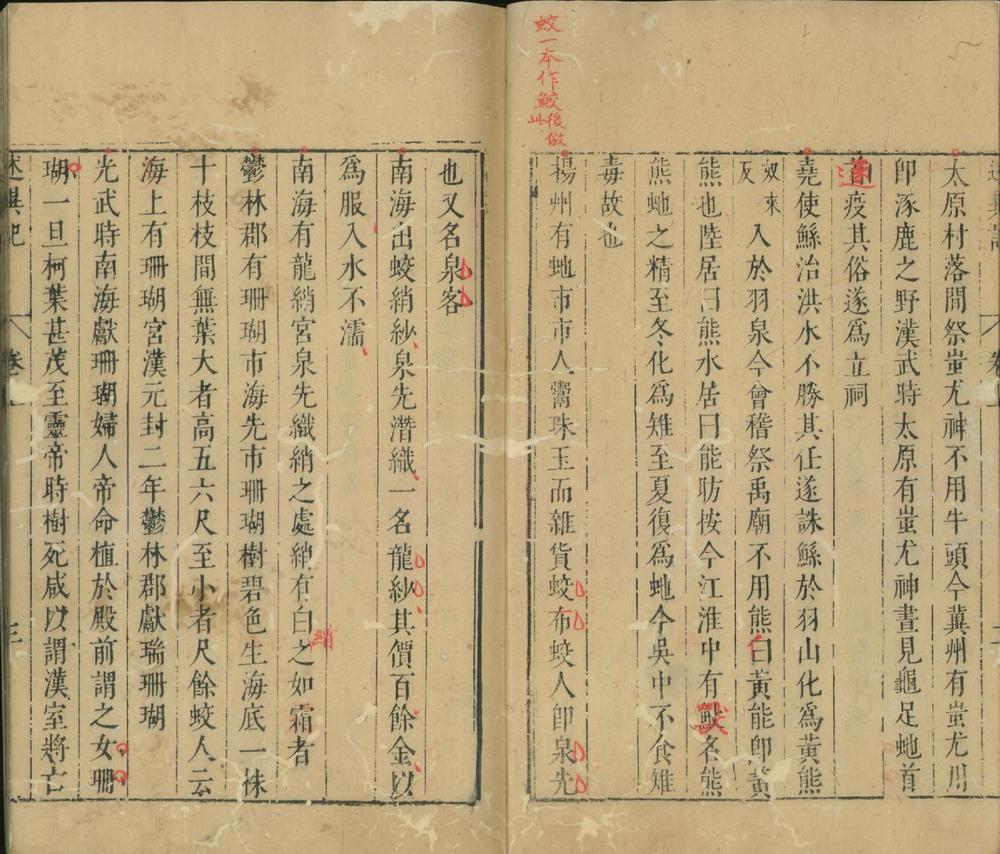 蛟一本作鮫後倣
此
太原村落間祭蚩尤神不用牛頭今冀州有蚩尤川
卽涿鹿之野漢武時太原有蚩尤神晝見龜足虵首
疫其俗遂爲立祠
堯使鯀治洪水不勝其任遂誅鯀於羽山化爲黃熊
奴來
反
入於羽泉今會稽祭禹廟不用熊曰黃能卽黃
熊也陸居曰熊水居曰能昉按今江淮中有獸名熊
熊虵之精至冬化爲雉至夏復爲虵今吳中不食雉
毒故也
揚州有虵市市人鬻珠玉而雜貨蛟布蛟人卽泉先
也又名泉客
南海出蛟綃紗泉先潛織一名龍紗其價百餘金以
爲服入水不濡
南海有龍綃宮泉先織綃之處綃有白之如霜者
綃
鬱林郡有珊瑚市海先市珊瑚樹碧色生海底一株
十枝枝間無葉大者高五六尺至小者尺餘蛟人云
海上有珊瑚宮漢元封二年鬱林郡獻瑞珊瑚
光武時南海獻珊瑚婦人帝命植於殿前謂之女珊
瑚一旦柯葉甚茂至靈帝時樹死咸以謂漢室將亡
述異記
卷上
三